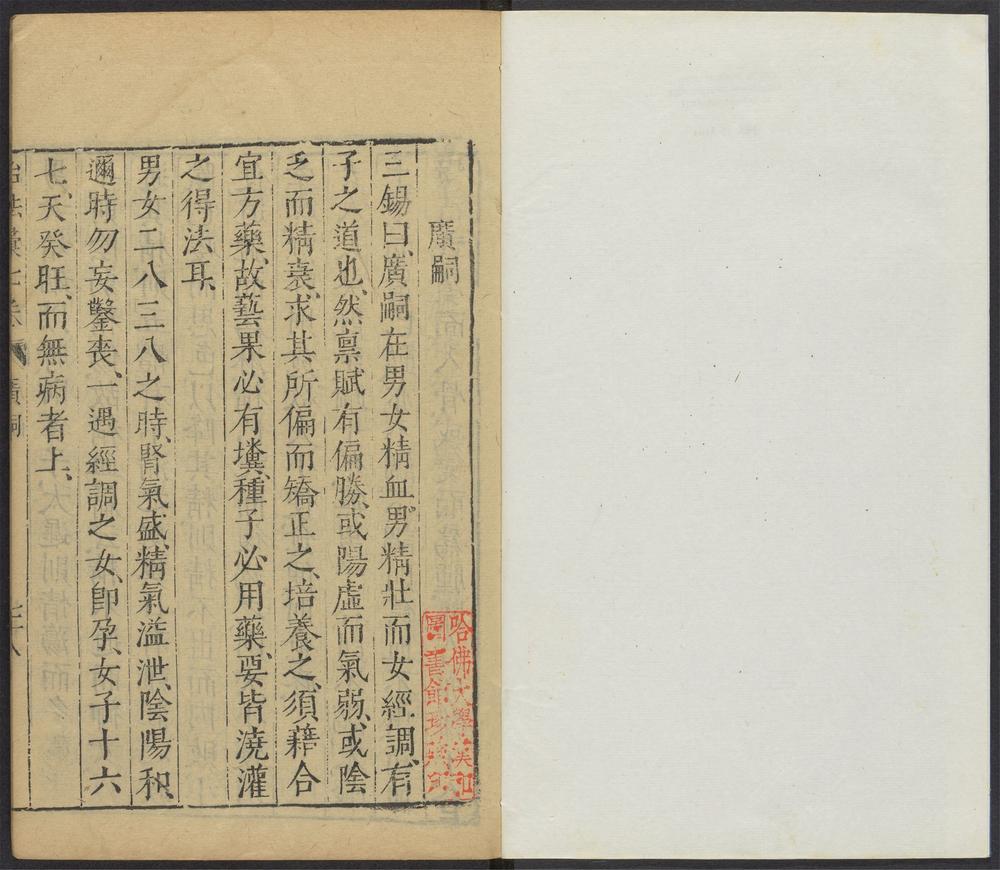 廣嗣
三錫曰、廣嗣在男女精血、男精壯而女經調、有
子之道也、然稟賦有偏勝、或陽虛而氣弱、或陰
乏而精衰、求其所偏而矯正之、培養之、須藉合
宜方藥、故藝果必有壤、種子必用藥、要皆澆灌
之得法耳、
男女二八三八之時、腎氣盛、精氣溢泄、陰陽和、
邇時勿妄鑿喪、一遇經調之女、卽孕、女子十六
七、天癸旺、而無病者上、
廣嗣
哈佛大學漢和
圖書館珍藏印